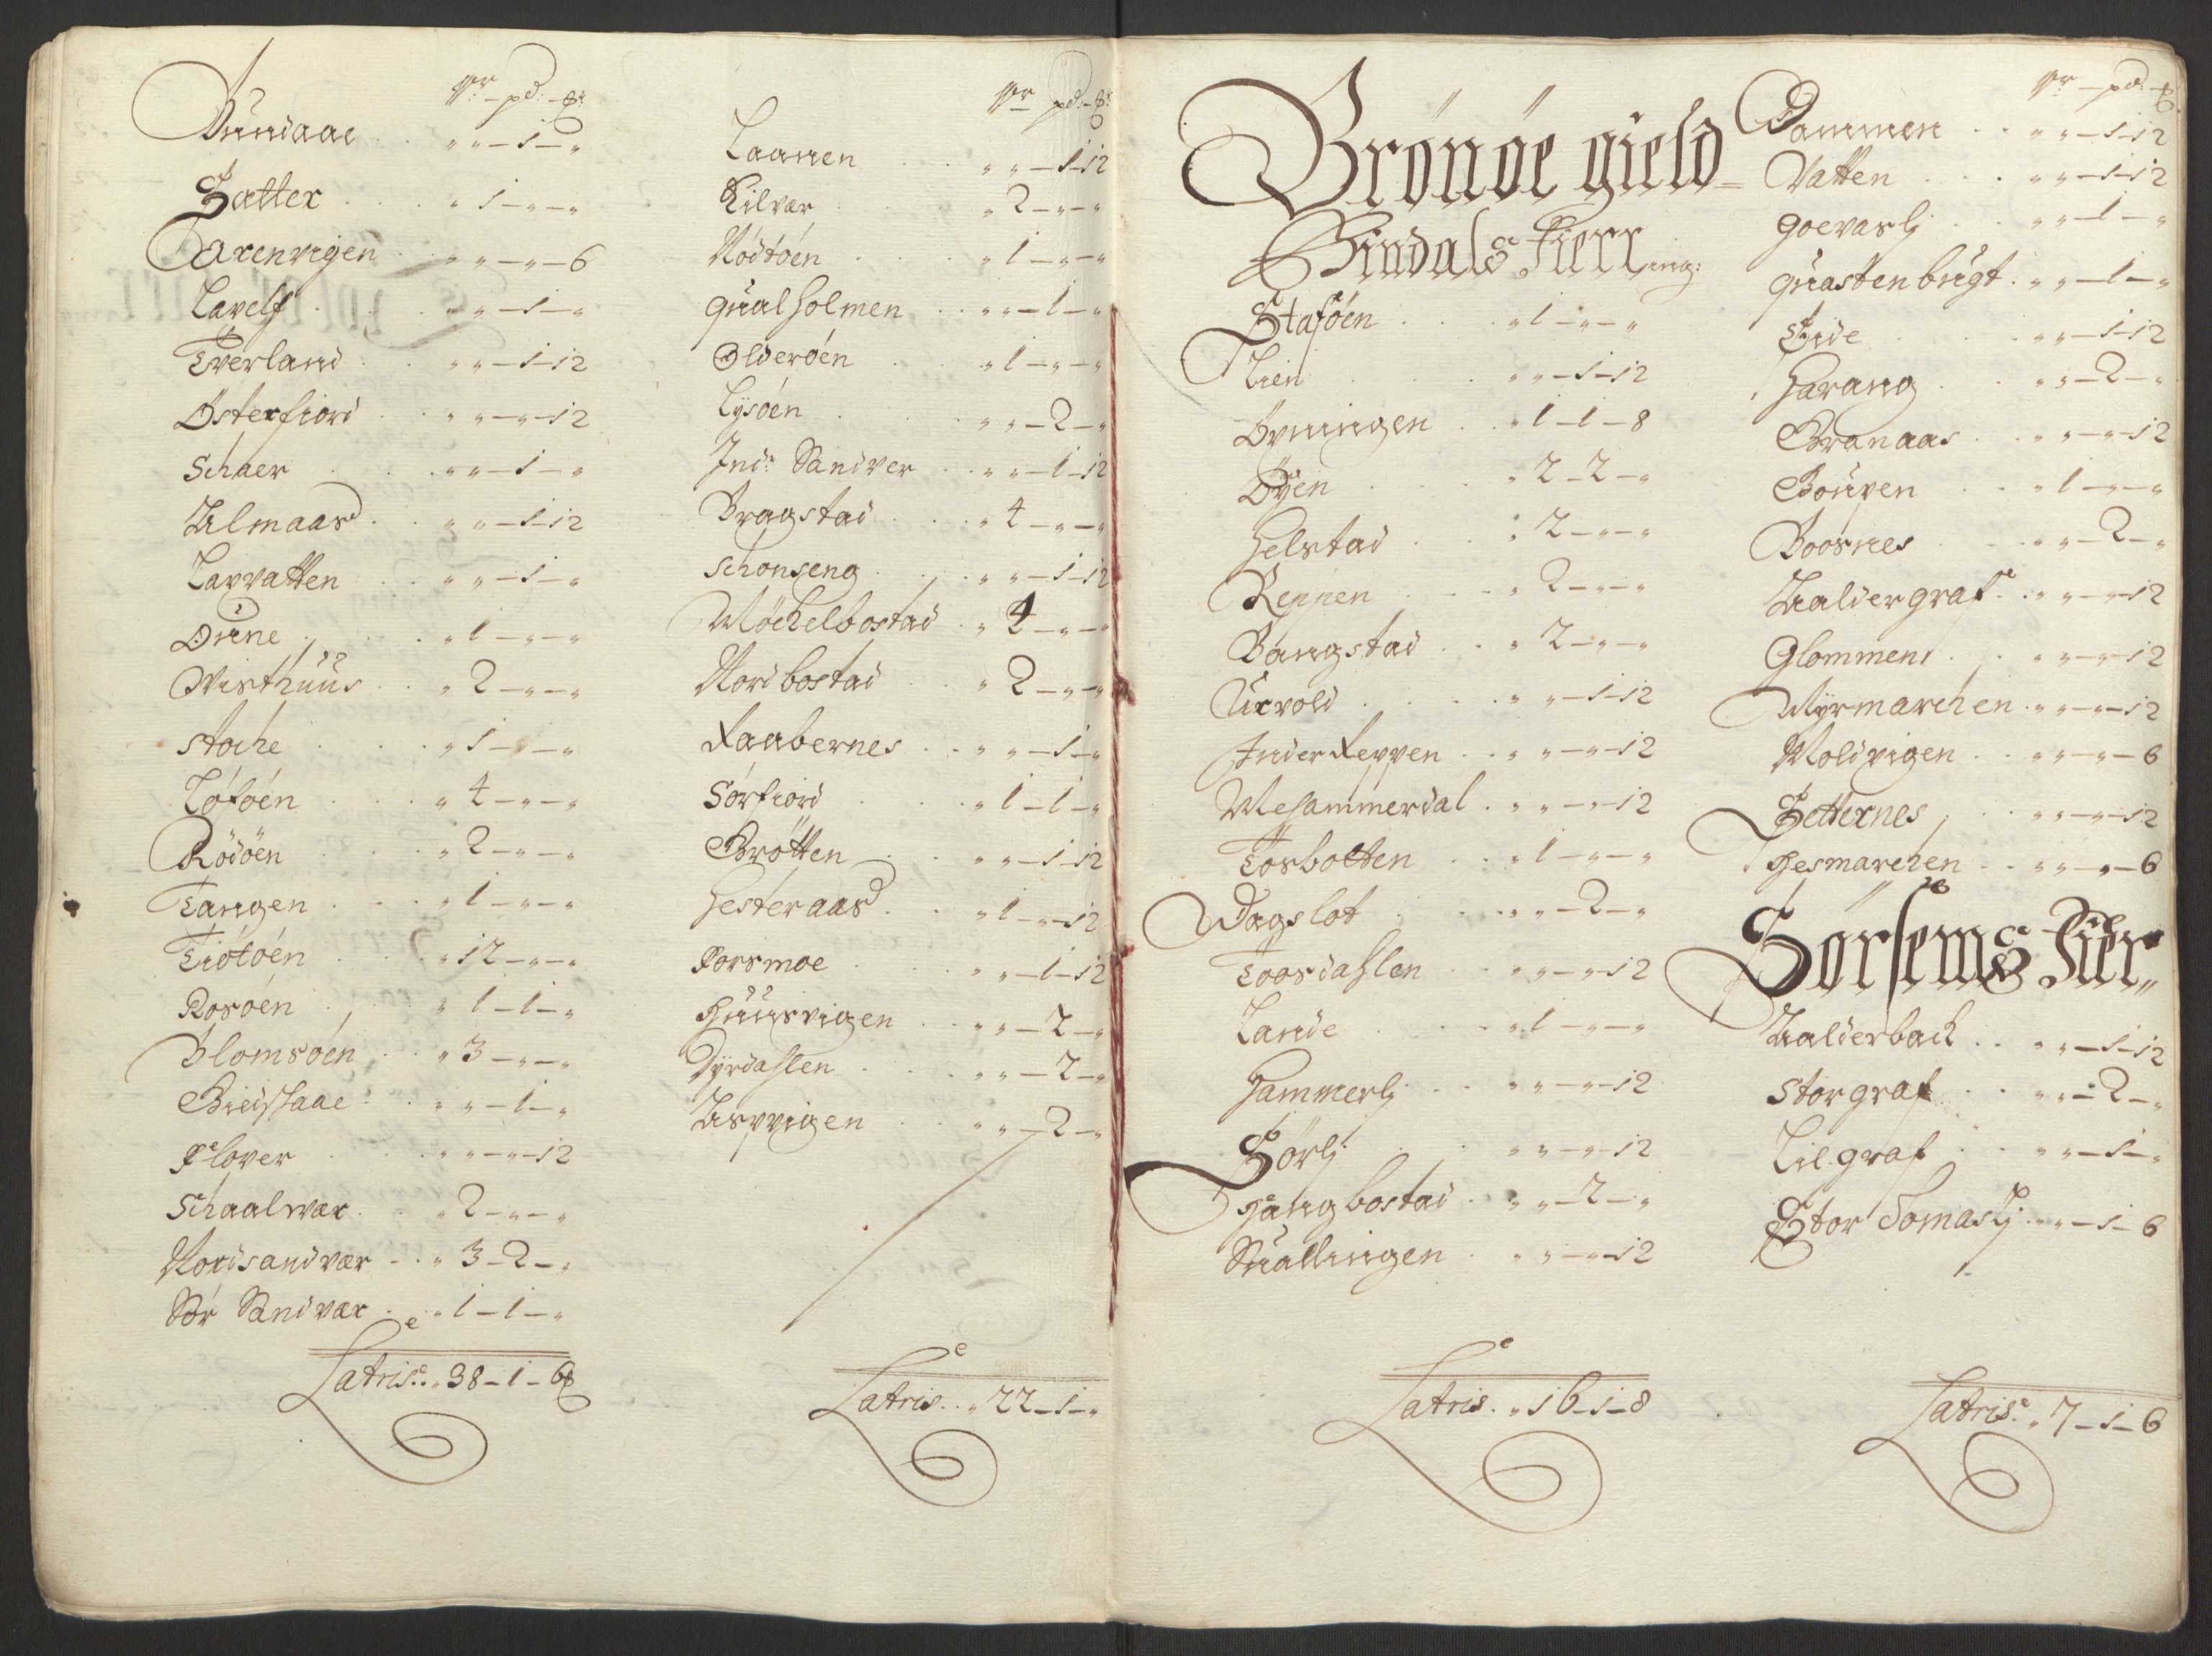 Vr - pd: - ℔:
Aundaae . . „ „ - 1 - „
Satter . . . „ 1 - „ - „
Axenvigen . „ „ - „ - 6
Lavelf . . . „ „ - 1 - „
Tverland . . „ „ - 1 - 12
Østerfiord . . „ „ - „ - 12
Schaer . . . „ „ - 1 - „
Ulmaas . . „ „ - 1 - 12
Lavvatten . . „ „ - 1 - „
Øune . . . „ 1 - „ - „
Visthuus . . „ 2 - „ - „
Stoche . . . „ 1 - „ - „
Löföen . . . „ 4 - „ - „
Rödöen . . . „ 2 - „ - „
Tangen . . . „ 1 - „ - „
Tiötöen . . . „ 12 - „ - „
Rosöen . . . „ 1 - 1 - „
Blomsöen . . „ 3 - „ - „
Biedstaae . . „ „ - 1 - „
Flover . . . „ „ - „ - 12
Schaalwær . . „ 2 - „ - „
Nordsandvær . . „ 3 - 2 - „
Sör Sandvær . „ 1 - 1 - „
Latris: „ 38 - 1 - 6 ℔
Vr pd: - ℔:
Laanen . . „ „ - 1 - 12
Kilvær . . . „ 2 - „ - „
Rödtöen . . . „ 1 - „ - „
Qualholmen . . „ „ - 1 - „
Olderöen . . „ 1 - „ - „
Lysöen . . . „ „ - 2 - „
Ind: Sandver . . „ „ - 1 - 12
Bragstad . . „ 4 - „ - „
Schonseng . . „ „ - 1 - 12
Möchelbostad . „ 4 - „ - „
Nordbostad . . „ 2 - „ - „
Raabernes . . „ „ - 1 - „
Sörfiord . . . „ 1 - 1 - „
Brötten . . . „ „ - 1 - 12
Hesteraas . . „ 1 - „ - 12
Forsmoe . . „ „ - 1 - 12
Huusvigen . . „ „ - 2 - „
Dyrdahlen . . „ „ - 2 - „
Uspvigen . . „ „ - 2 - „
Latris. . „ 22 - 1 - „
Brönöe gield
Bindals Fierring:
Staföen . . . „ 1 - „ - „
Lien . . . „ „ - 1 - 12
Øvningen . . „ 1 - 1 - 8
Øyen . . . „ 2 - 2 - „
Helstad . . : 2 - „ - „
Reppen . . . „ 2 - „ - „
Bangstad . . „ 2 - „ - „
Urvold . . . „ „ - 1 - 12
Inder Reppen . . „ „ - „ - 12
Mehammerdal . „ „ - „ - 12
Tosbotten . . „ 1 - „ - „
Dagslot . . „ „ - 2 - „
Toosdahlen . . „ „ - „ - 12
Lande . . . „ 1 - „ - „
Hammerlj . . „ „ - „ - 12
Sörlj . . „ „ - „ - 12
Hangbostad . . „ „ - 2 - „
Skallingen . „ „ - „ - 12
Latris. „ 16 - 1 - 8
Vr - pd: - ℔:
Dammen . . „ „ - 1 - 12
Vatten . . . „ „ - 1 - 12
Goevaslj . . „ „ - 1 - „
Quastenbugt . „ „ - 1 - „
Eide . . . „ „ - 1 - 12
Harang . . „ „ - 2 - „
Granaas . . „ „ - „ - 12
Bouven . . „ 1 - „ - „
Boosnes . . „ „ - 2 - „
Kaldergraf . „ „ - „ - 12
Glommen . . „ „ - „ - 12
Myrmarchen . „ „ - „ - 12
Moldvigen . . „ „ - „ - 6
Setternes . . „ „ - „ - 12
Hesmarchen . . „ „ - „ - 6
Sörsems Fier„
Kalderback . . „ „ - 1 - 12
Storgraf . . „ „ - 2 - „
Lil: graf . . „ „ - 1 - „
Stor Somaslj . „ „ - 1 - 6
Latris: „ 7 - 1 - 6